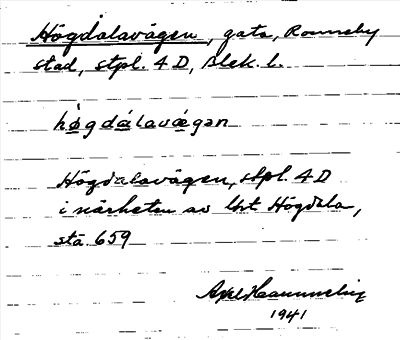 Högdalavägen, gata, Ronneby
stad, stpl. 4 D, Blek. l.
högdálavägen
Högdalavägen, stpl. 4 D
i närheten av lht Högdala,
stä. 659
1941